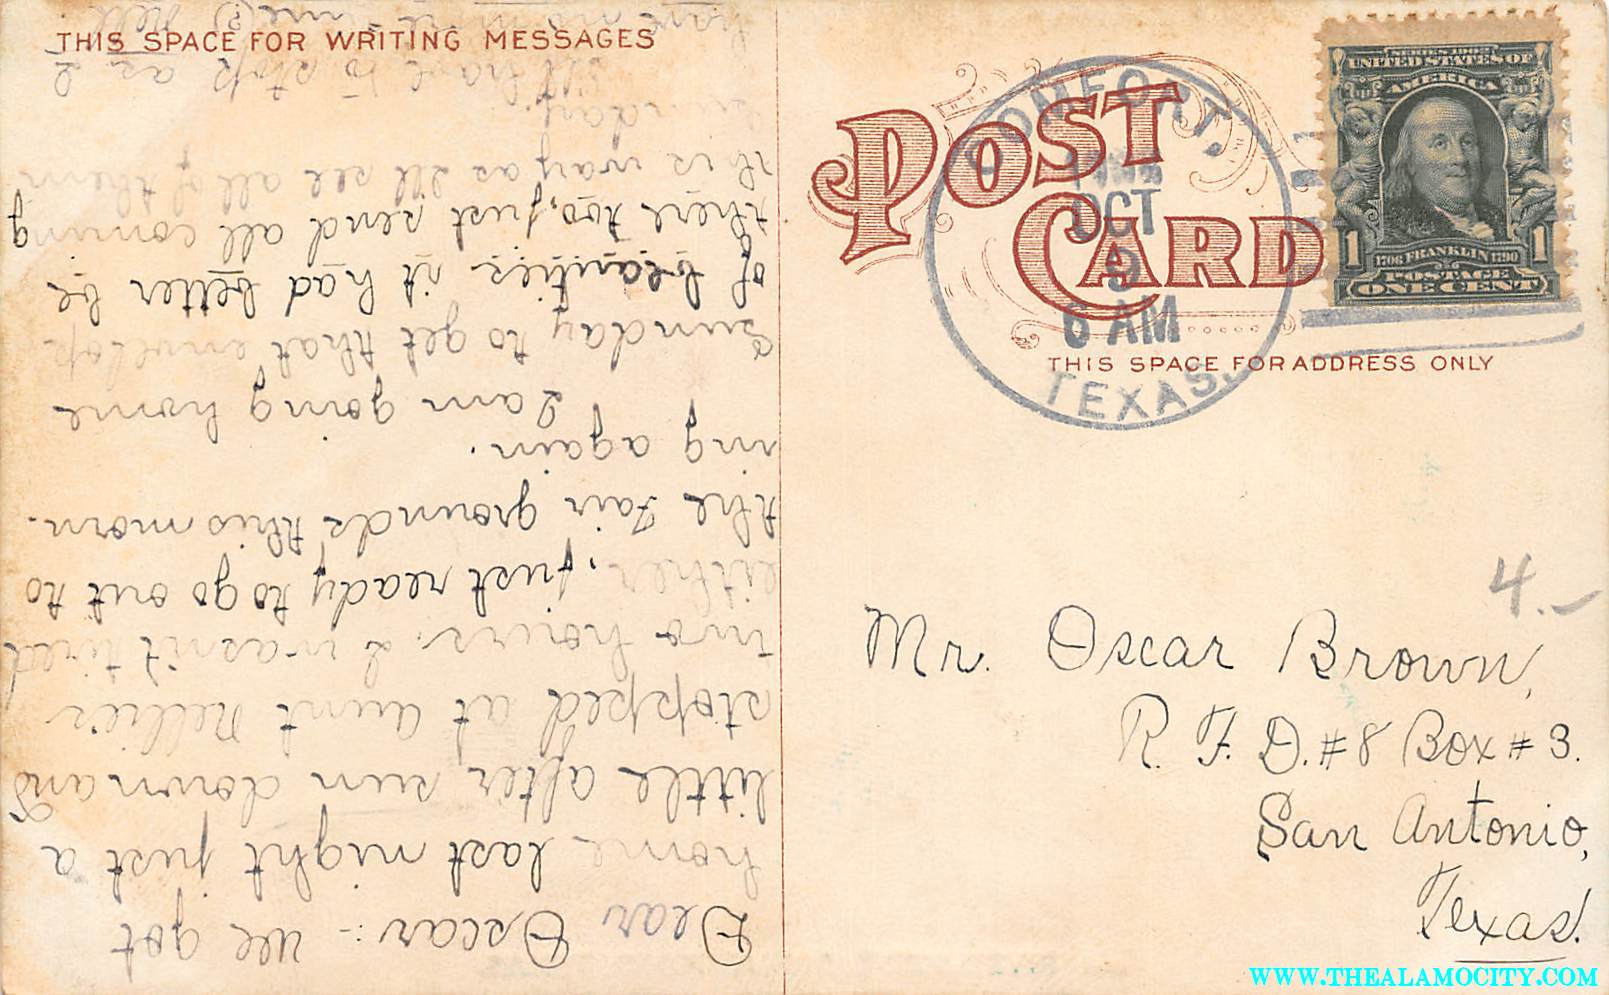 THIS SPACE FOR WRITING MESSAGES
Dear Oscar:- We got
home last night just a
little after sun down and
stopped at aunt Nellie's
two hours. I wasn't tired
either, just ready to go out to
the Fair grounds this morn-
ing again.
I am going home
Sunday to get that envelop
of beauties it had better be
there too, just send all coming
this way as I'll see all of them
Sunday.
I'll have to stop as I
have no more time(?) Nell
POST CARD
THIS SPACE FOR ADDRESS ONLY
COMFORT,
OCT
9
6 AM
TEXAS.
SERIES 1902
UNITED STATES OF
AMERICA
1 1706 FRANKLIN 1790 1
POSTAGE
ONE CENT
4.-
Mr. Oscar Brown,
R. F. D. #8 Box #3.
San Antonio,
Texas.
WWW.THEALAMOCITY.COM